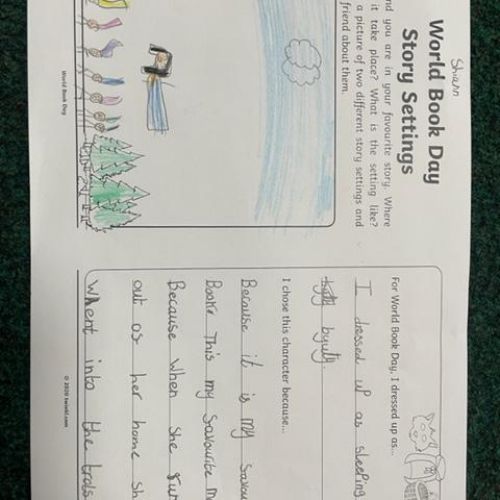 World Book Day
Story Settings
nd you are in your favourite story. Where
it take place? What is the setting like?
a picture of two different story settings and
friend about them.
World Book Day
For World Book Day, I dressed up as...
I dressed up as sleeping
byuity
I chose this character because...
Because it is my favou
Book. This my favourite m
Because when she run
out of her home sh
whent into the trols
© 2020 twinkl.com